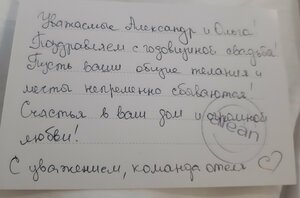 Уважаемые Александр и Ольга!
Поздравляем с годовщиной свадьбы
Пусть ваши общие желания и
мечты непременно сбываются!
Счастья в ваш дом и огромной
любви!
clean
С уважением, команда отеля